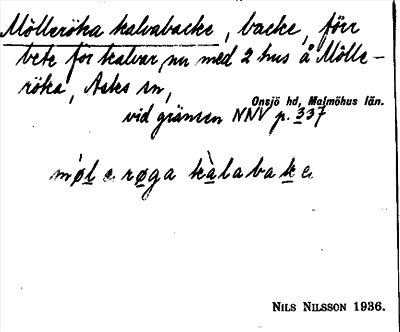 Mölleröka kalvabacke, backe, förr
bete för kalvar, nu med 2 hus å Mölle-
röka, Asks sn,
Onsjö hd, Malmöhus län.
vid gränsen NNV p. 337
møl e røga kàlabake
NILS NILSSON 1936.